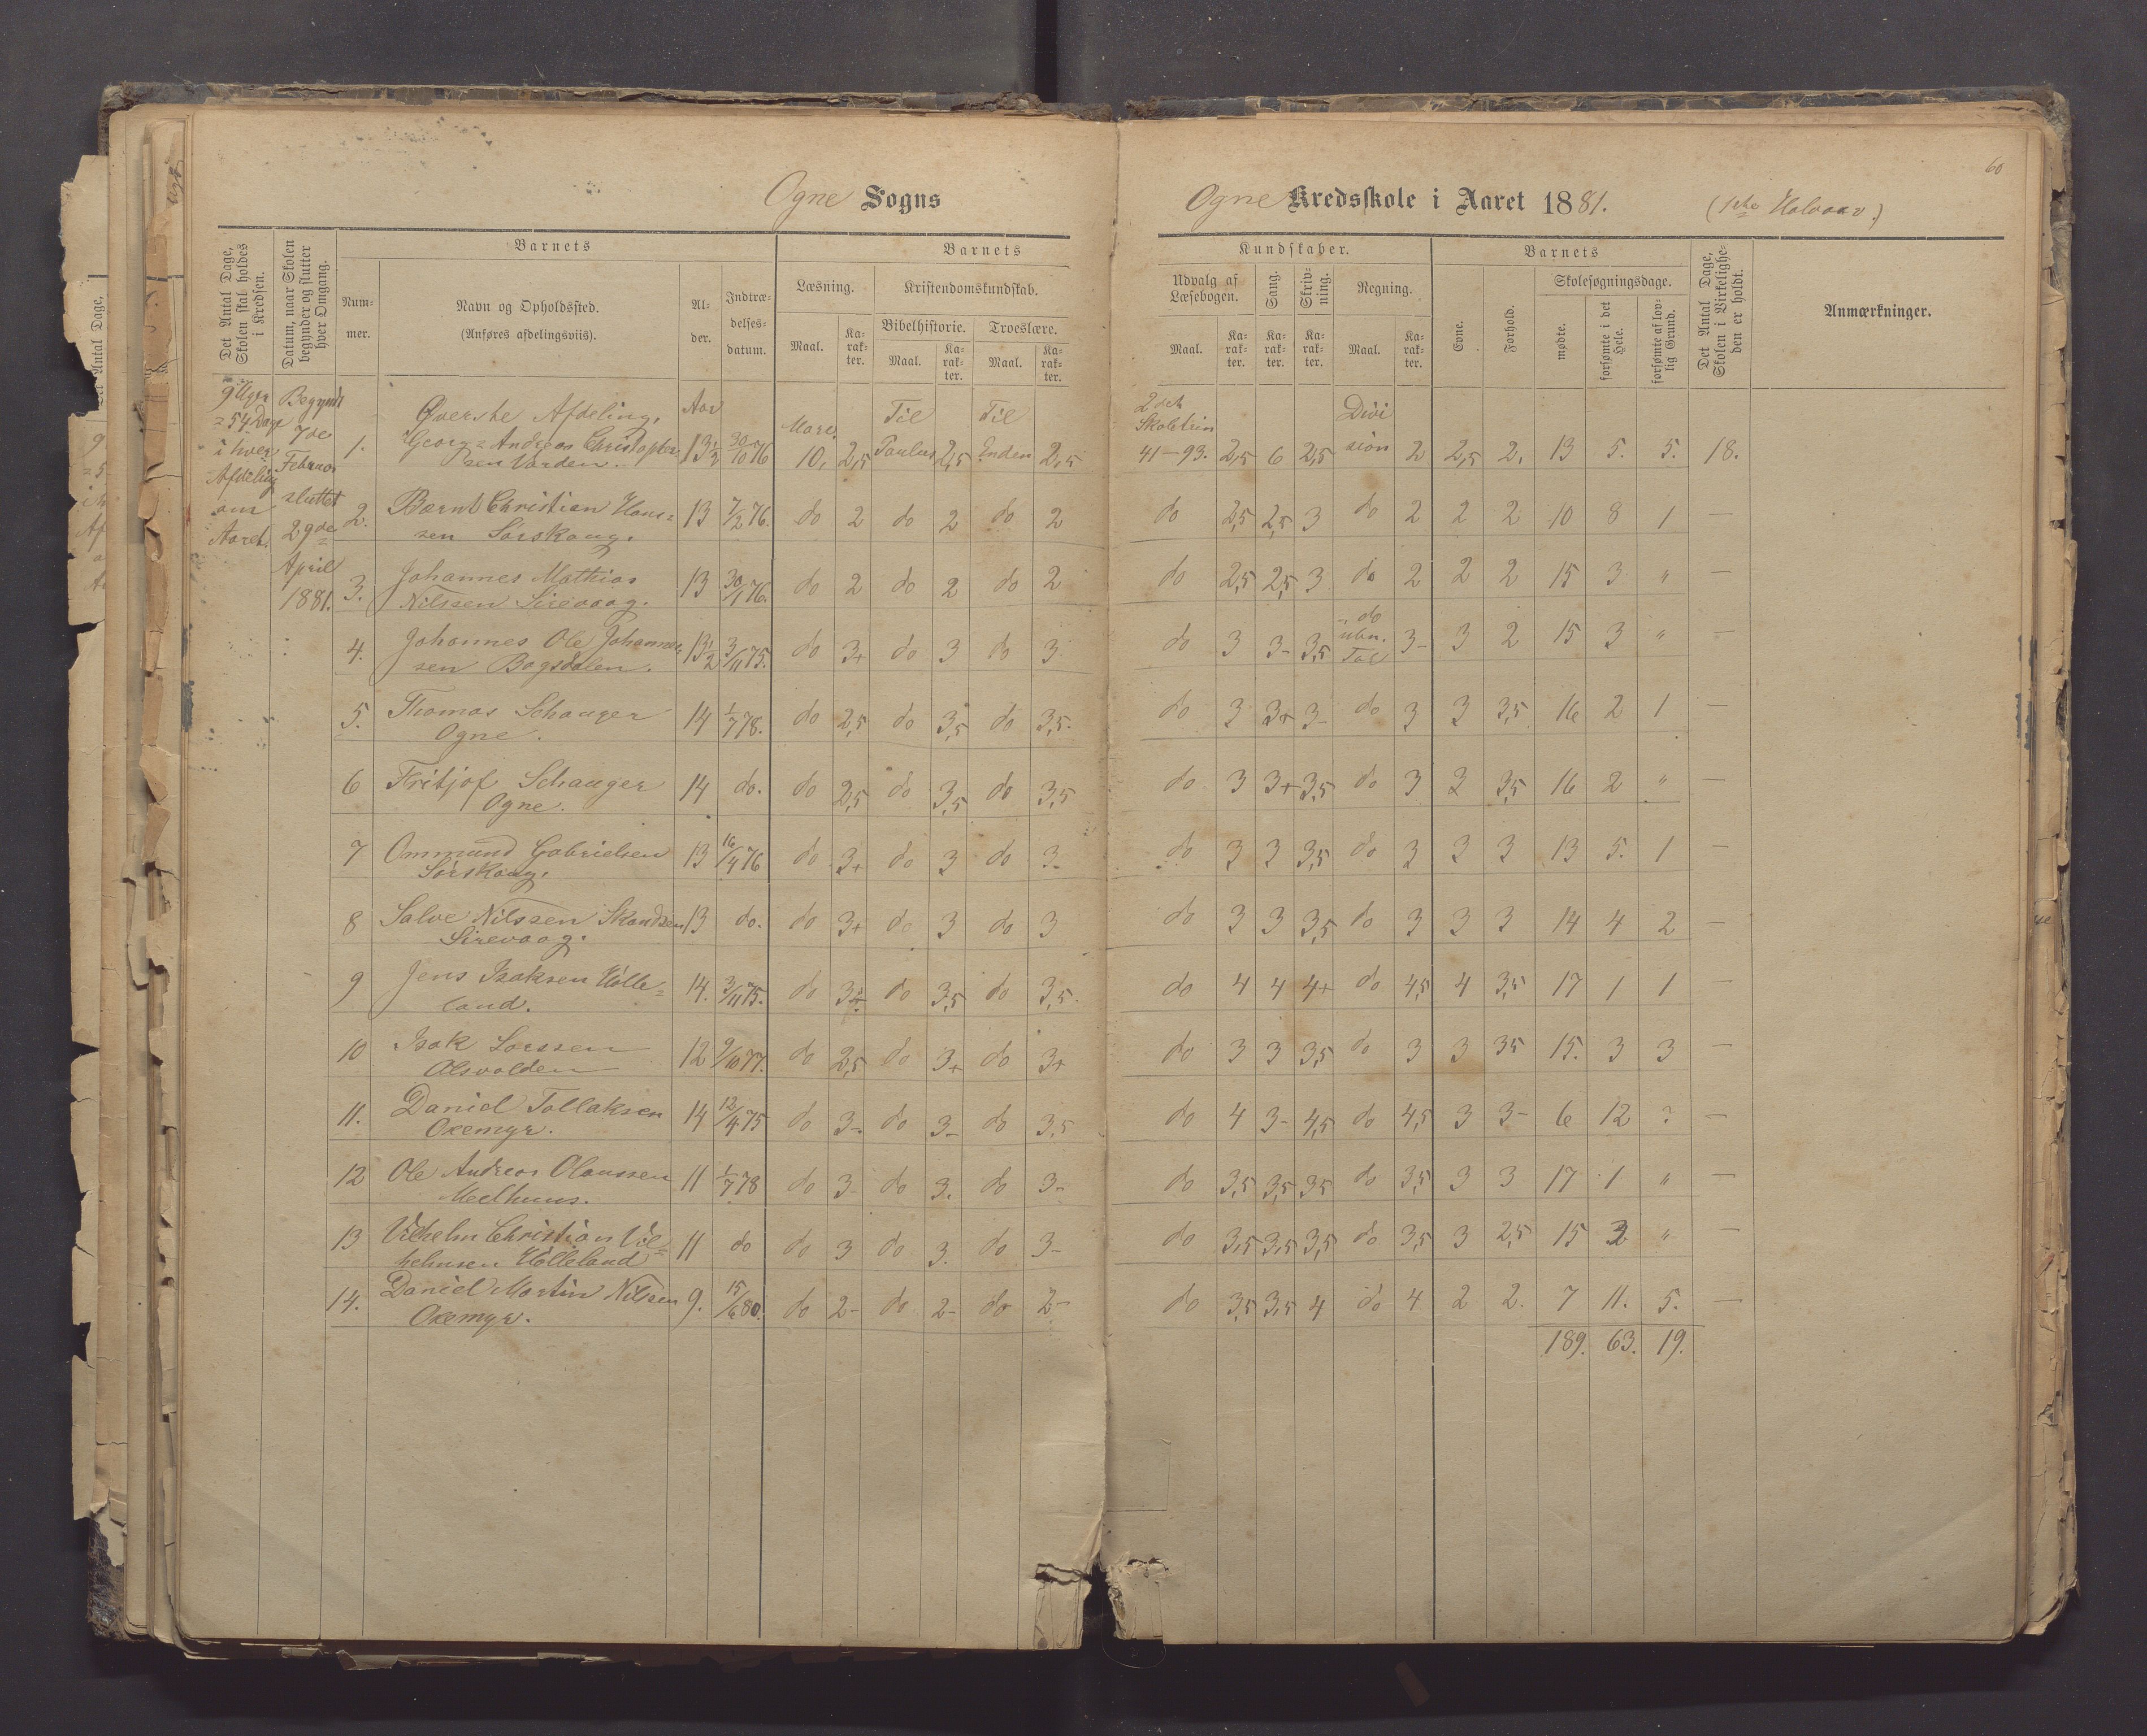 60
Ogne Sogns
Ogne Kredsskole i Aaret 1881. (1ste Halvaar.)
Det Antal Dage, Skolen skal holdes i Kredsen.
Datum, naar Skolen begynder og slutter hver Omgang.
Barnets
Num-
mer.
Navn og Opholdssted.
(Anføres afdelingsviis).
Al-
der.
Indtræ-
delses-
datum.
Barnets
Læsning.
Kristendomskundskab.
Bibelhistorie. Troeslære.
Maal. Ka-rak-ter. Maal. Ka-rak-ter. Maal. Ka-rak-ter.
Kundskaber.
Udvalg af Læsebogen. Sang. Skriv-ning. Regning.
Maal. Ka-rak-ter. Ka-rak-ter. Ka-rak-ter. Maal. Ka-rak-ter.
Barnets
Evne. Forhold. Skolesøgningsdage.
mødte. forsømte i det Hele. forsømte af lov-lig Grund.
Det Antal Dage, Skolen i Virkelighe-den er holdt.
Anmærkninger.
9 Uger
= 54 Dage
i hver
Afdeling
om
Aaret.
Begyndt
7de
Februar
sluttet
29de
April
1881.
Øverste Afdeling. Aar Til Til 2det Skoletrin Divi
1. Georg Andreas Christopher 13½ 30/10 76 Marc. 10. 2,5 Paulus 2,5 Enden 2,5 41-93. 2,5 6 2,5 sion 2 2,5 2. 13 5. 5. 18.
sen Varden.
2. Bernt Christian Hans= 13 7/2 76. do 2 do 2 do 2 do 2,5 2,5 3 do 2 2 2 10 8 1 —
sen Sørskoug.
3. Johannes Mathias 13 30/1 76. do 2 do 2 do 2 do 2,5 2,5 3 do 2 2 2 15 3 " —
Nilssen Sirevaag.
4. Johannes Ole Johannes 13½ 3/11 75. do 3+ do 3 do 3 do 3 3- 3,5 do ubn. Tal 3- 3 2 15 3 " —
sen Bogsdalen.
5. Thomas Schauger 14 1/7 78. do 2,5 do 3,5 do 3,5. do 3 3+ 3- do 3 3 3,5 16 2 1 —
Ogne.
6 Fritjof Schauger 14 do. do 2,5 do 3,5 do 3,5 do 3 3+ 3,5 do 3 3 3,5 16 2 " —
Ogne.
7 Ommund Gabrielsen 13 16/4 76 do 3+ do 3 do 3- do 3 3 3,5 do 3 3 3 13 5. 1 —
Sørskoug.
8 Salve Nilssen Skandsen 13 do. do 3+ do 3 do 3 do 3 3 3,5 do 3 3 3 14 4 2 —
Sirevaag.
9 Jens Isaksen Hölle= 14. 3/11 75. do 3+ do 3,5 do 3,5. do 4 4 4+ do 4,5 4 3,5 17 1 1 —
land.
10 Isak Larssen 12 9/10 77. do 2,5 do 3+ do 3+ do 3 3 3,5 do 3 3 3,5 15. 3 3 —
Alsvolden
11. Daniel Tollaksen 14 12/4 75 do 3-. do 3- do 3,5 do 4 3- 4,5 do 4,5 3 3- 6 12 ? —
Oxemyr.
12 Ole Andreas Olaussen 11 1/7 78 do 3- do 3. do 3- do 3,5 3,5 3,5 do 3,5 3 3 17 1 " —
Medhuus.
13 Vilhelm Christian Vil= 11 do do 3 do 3. do 3- do 3,5 3,5 3,5 do 3,5 3 2,5 15 3 " —
helmsen Hölleland
14. Daniel Martin Nilssen 9. 15/6 80. do 2- do 2- do 2- do 3,5 3,5 4 do 4 2 2. 7 11. 5. —
Oxemyr.
189. 63. 19.